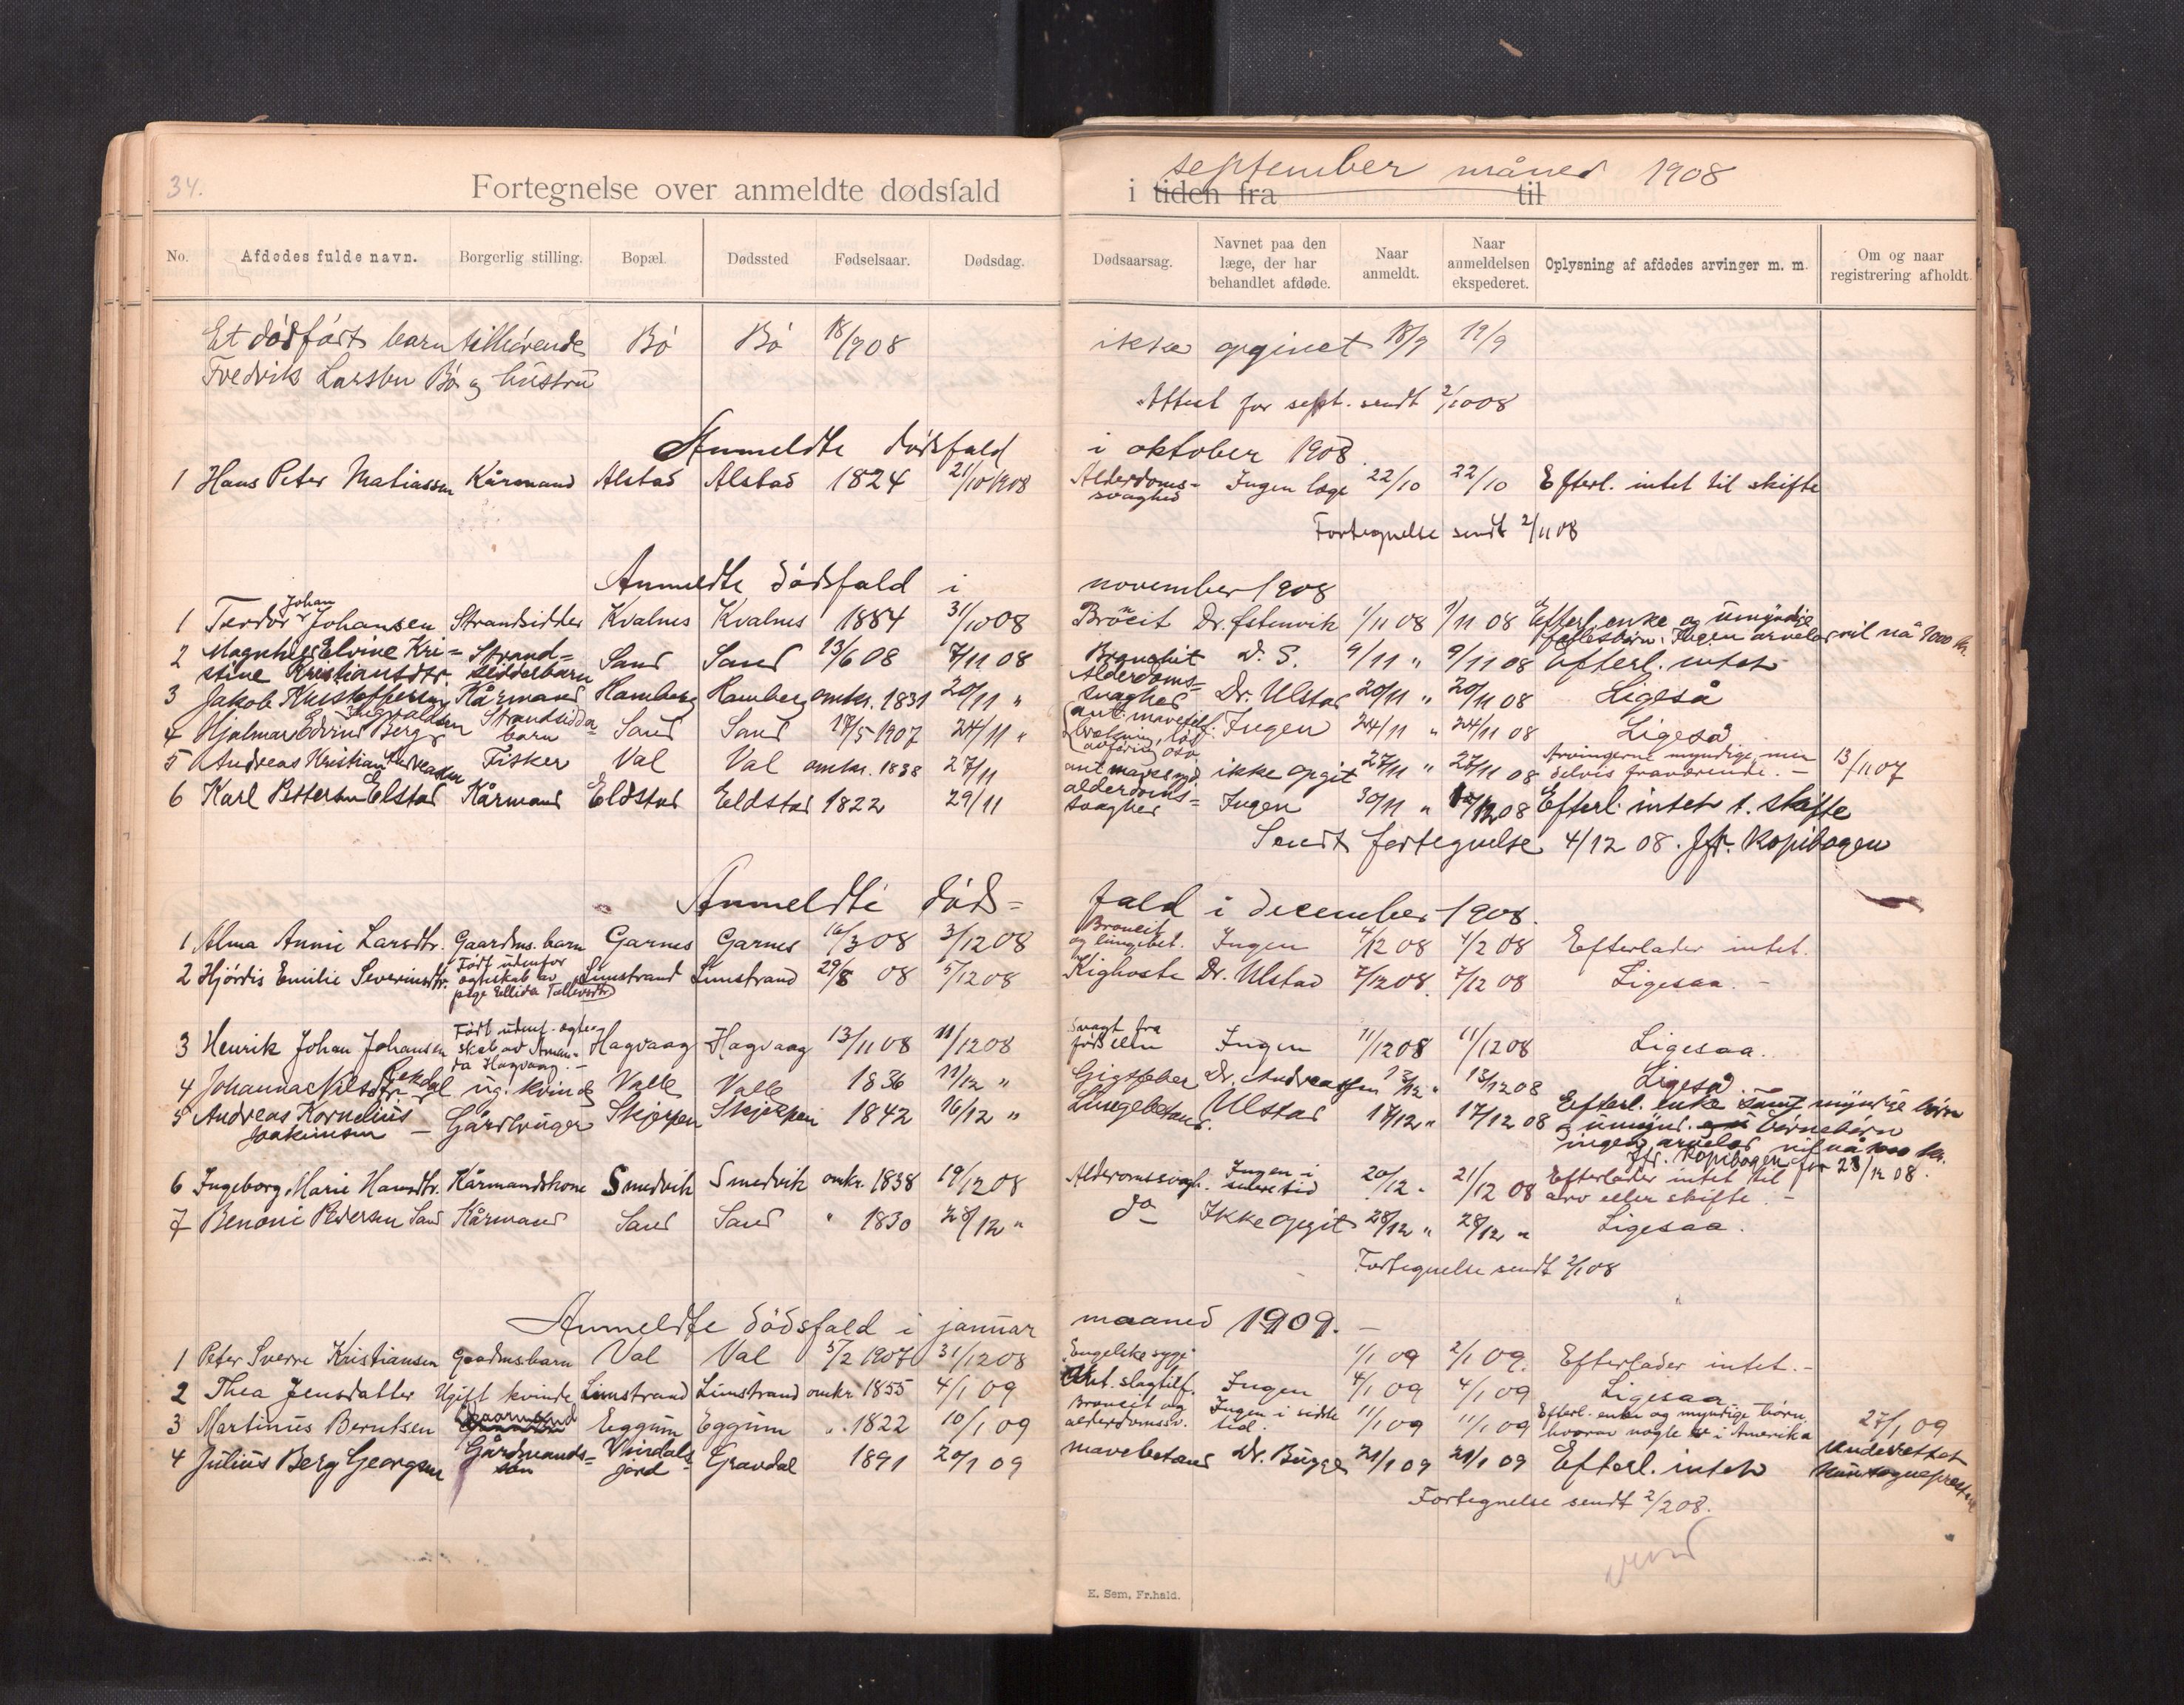 34.
Fortegnelse over anmeldte dødsfald i tiden fra til
september måned 1908
No. Afdødes fulde navn. Borgerlig stilling. Bopæl. Dødssted Fødselsaar. Dødsdag. Dødsaarsag. Navnet paa den læge, der har behandlet afdøde. Naar anmeldt. Naar anmeldelsen ekspederet. Oplysning af afdødes arvinger m. m. Om og naar registrering afholdt.
Et dødfødt barn tilhørende Bö Bö 18/9 08 ikke opgivet 18/9 19/9
Fredrik Larsen Bö og hustru
Attest for sept. sendt 2/10 08
Anmeldte dødsfald i oktober 1908.
1 Hans Peter Matiassen Kårmand Alstad Alstad 1824 21/10 1908 Alderdoms- Ingen læge 22/10 22/10 Efterl. intet til skifte
svaghed
Fortegnelse sendt 2/11 08
Anmeldte dødsfald i november 1908
Johan
1 Johansen Strandsidder Kvalnes Kvalnes 1884 31/10 08 Dr. 1/11 08 1/11 08 Efterl. enke og umyndige
fellesbörn. Ingen arvelod vil nå 1000 kr.
2 Elvine Kri- Strand- Sand Sand 13/6 08 7/11 08 D. S. 9/11 " 9/11 08 Efterl. intet
stine Kristiansdtr. sidderbarn
3 Jakob Kristoffersen Kårmand Hamberg Hamberg omkr. 1831 20/11 " Alderdoms- Dr. Ulstad 20/11 " 20/11 08 Ligeså
svaghed
Ingvaldsen
4 Hjalmar Edvin Berg Strandsidder- Sand Sand 17/5 1907 24/11 " Ingen 24/11 " 24/11 08 Ligeså
barn
5 Andreas Kristian Andreassen Fisker Val Val omkr. 1838 27/11 ant. mavesyg ikke opgit 27/11 " 27/11 08 Arvingerne myndige, men 13/11 07
delvis fraværende. —
6 Karl Pettersen Elstad Kårmand Eldstad Eldstad 1822 29/11 alderdoms- Ingen 30/11 " 08 Efterl. intet t. skifte
svaghed
Sendt fortegnelse 4/12 08. Jfr. kopibogen
Anmeldte döds- fald i december 1908.
1 Alma Annie Larsdtr. Gaardms. barn Garnes Garnes 16/3 08 3/12 08 Broncit Ingen 4/12 08 4/12 08 Efterlader intet.
og lungebet.
2 Hjördis Emilie Severinsdtr. Født udenfor Limstrand Limstrand 29/8 08 5/12 08 Kighoste Dr. Ulstad 7/12 08. 7/12 08 Ligesaa. —
egteskab av
pige Ellida Tollevsdtr.
3 Henrik Johan Johansen Født udenf. egte- Hagvaag Hagvaag 13/11 08 11/12 08 Svagt fra Ingen 11/12 08 11/12 08 Ligesaa.
skab av Aman- fødselen
da Hagvaag. —
4 Johanna Nilsdtr. Rekdal ug. kvinde Valle Valle 1836 11/12 " Gigtfeber Dr. Andreassen 13/12 " 13/12 08 Ligeså
5 Andreas Kornelius Gårdbruger Skjerpen Skjerpen 1842 16/12 " Lungebetend. Ulstad 17/12 " 17/12 08 Efterl. enke samt myndige börn
Joakimsen — umynd. börnebörn
ingen arvelod vil nå 1000 kr.
Jfr. kopibogen for 23/12 08.
6 Ingeborg Marie Hansdtr. Kårmandskone Smedvik Smedvik omkr. 1838 19/12 08 Alderomssvagh. Ingen i 20/12 " 21/12 08 Efterlader intet til
senere tid arv eller skifte. —
7 Benoni Pedersen Sand Kårmand Sand Sand " 1830 28/12 " do Ikke opgit 28/12 " 28/12 " Ligesaa.
Fortegnelse sendt 2/1 08
Anmeldte dödsfald i januar maaned 1909. —
1 Peter Sverre Kristiansen Gaardmsbarn Val Val 5/2 1907 31/12 08 Engelske syge 1/1 09 2/1 09. Efterlader intet. —
2 Thea Jensdatter Ugift kvinde Limstrand Limstrand omkr. 1855 4/1 09 Ant. slagtilf. Ingen 4/1 09 4/1 09 Ligesaa
3 Martinus Berntsen Kaarmand Eggum Eggum " 1822 10/1 09 Broncit og Ingen i sidste 11/1 09 11/1 09 Efterl. enke og myndige börn, 25/1 09
alderdomssv. tid. hvorav nogle er i Amerika
4 Julius Berg Georgsen Gårdmands- Gravdal 1891 20/1 09 mavebetend Dr. Bugge 21/1 09 21/1 09 Efterl. intet Underrettet
sön jord sogneprest
Fortegnelse sendt 2/2 08.
vend
E. Sem, Fr.hald.